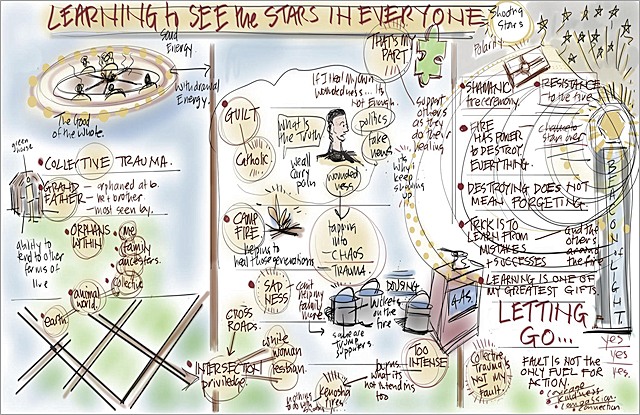 LEARNING to SEE the STARS IN EVERYONE
Send
Energy.
Withdrawal
Energy.
The Good
of the whole.
green
house
COLLECTIVE TRAUMA.
GRAND
FATHER
- orphaned at 6.
- he & brother.
- most seen by.
ORPHANS
WITHIN
me
family
ancestors.
collective
ability to
tend to other
forms of
live
animal
world.
earth
CROSS
ROADS.
INTERSECTION
privilege.
white
woman
lesbian.
GUILT
Catholic
If I heal my own
woundedness... It's
Not Enough.
What is
the Truth
politics
fake
news
we all
carry
pain
wounded
ness
CAMP
FIRE
helping to
heal those generations
tapping
into
CHAOS
TRAUMA.
SAD
NESS
can't
help my
family
more
some are
Trump
supporters.
DOUSING
buckets
on the
fire
burns.
what its
not intend ms
too
Kenosha
fires.
nothing
to do with
TOO
INTENSE
4 AS.
THAT'S MY
PART
support
others
as they
do their
healing
its
why
keep
showing
up
Shooting
Stars
Polarity
SHAMANIC
fire ceremony.
RESISTANCE
to the fire
FIRE
HAS POWER
to DESTROY
EVERYTHING.
chance to
start over
DESTROYING DOES NOT
MEAN FORGETTING.
TRICK IS TO
LEARN FROM
MISTAKES
+ SUCCESSES
and the
others
around
the fire
LEARNING IS ONE OF
MY GREATEST GIFTS.
BEACON of LIGHT
LETTING
GO...
yes
yes
yes.
Collective
Trauma is
Not my
Fault.
FAULT IS NOT THE
ONLY FUEL FOR
ACTION.
courage
kindness
compassion
connection